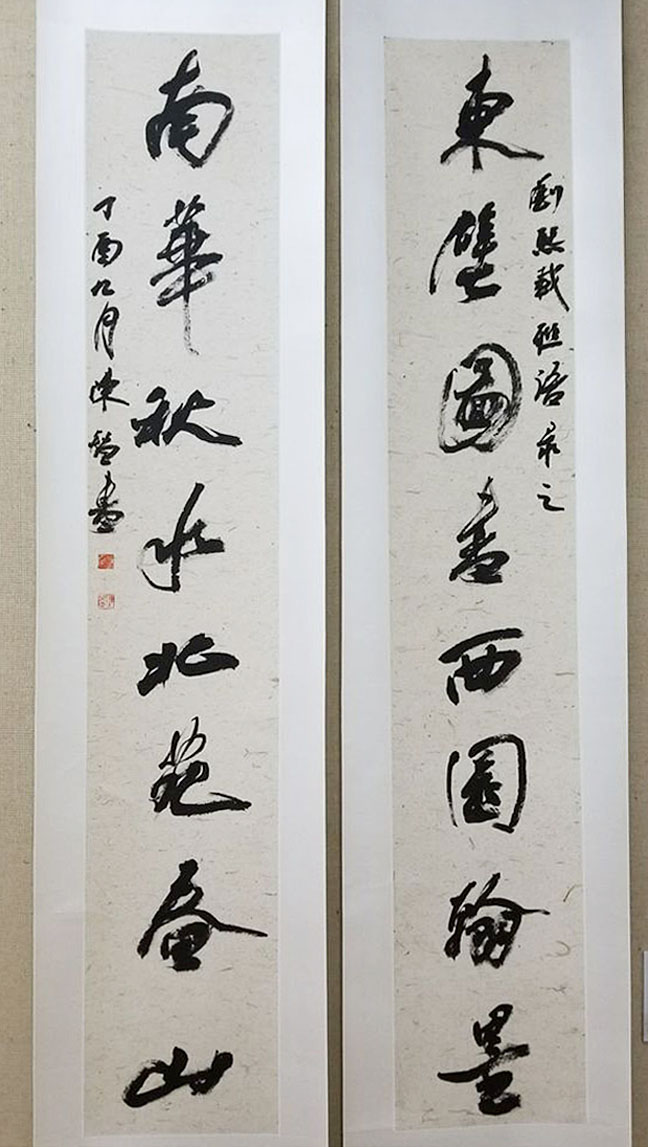 東壁圖書西園翰墨
劉熙載聯語 之
南華秋水北苑春山
丁酉九月陳 書